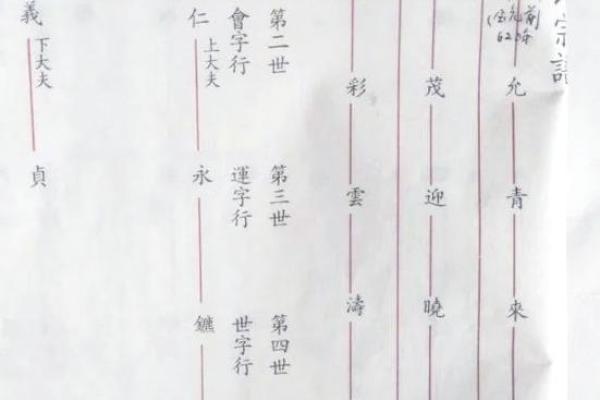 宗
允 青 來
茂 迎 曉
彩 雲 濤
第二世 第三世 第四世
會字行 運字行 世字行
仁 上大夫 永
義 下大夫 貞